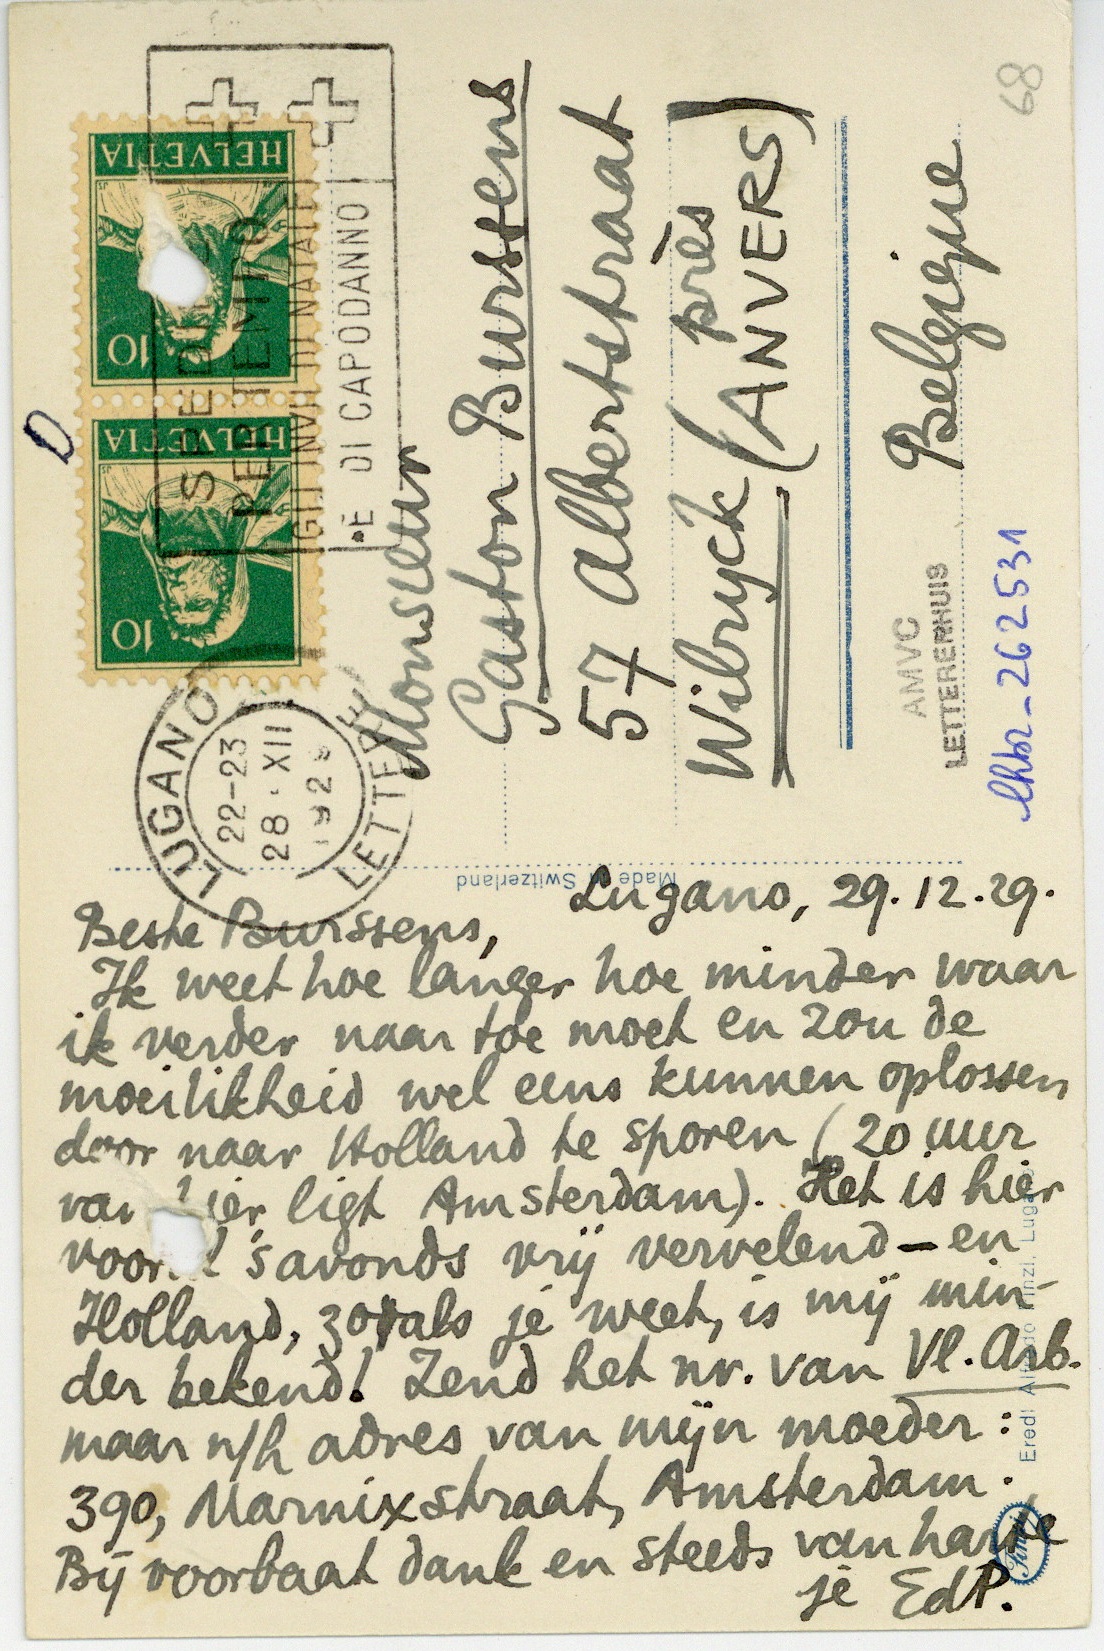 68
HELVETIA
10
HELVETIA
10
PER TEMPO
GLI INVII DI NATALE
E DI CAPODANNO
LUGANO
22-23
28. XII
1929
LETTERE
D
Monsieur
Gaston Burssens
57 Albertstraat
près
Wilryck (ANVERS)
Belgique
AMVC
LETTERENHUIS
lhbr-262531
Made in Switzerland
Lugano, 29.12.29.
Beste Burssens,
Ik weet hoe langer hoe minder waar
ik verder naar toe moet en zou de
moeilikheid wel eens kunnen oplossen,
door naar Holland te sporen (20 uur
van hier ligt Amsterdam). Het is hier
vooral 's avonds vrij vervelend — en
Holland, zoals je weet, is mij min-
der bekend! Zend het nr. van Vl. Arb.
maar n/h adres van mijn moeder:
390, Marnixstraat, Amsterdam.
Bij voorbaat dank en steeds van harte
je EdP.
Eredi Alfredo Finzi, Lugano
Finzi